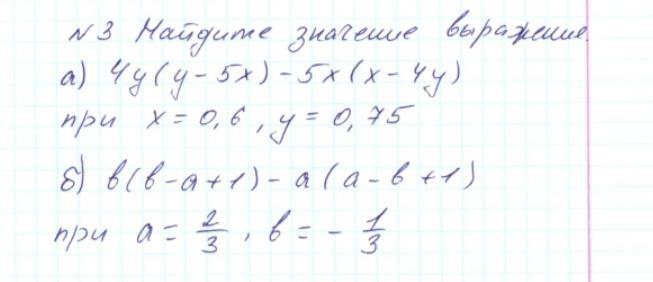 № 3 Найдите значение выражения.
а) 4y(y - 5x) - 5x(x - 4y)
при x = 0,6, y = 0,75
б) b(b - a + 1) - a(a - b + 1)
при a = 2/3, b = - 1/3